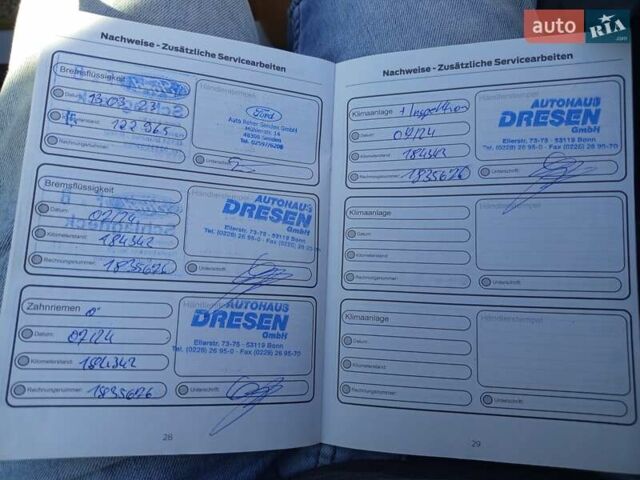 auto RIA .com
Nachweise - Zusätzliche Servicearbeiten
Bremsflüssigkeit
Händlerstempel
Ford
Auto Reher Senden GmbH
Mühlenstr. 14
48308 Senden
Tel. 02597/6208
Datum: 13.03.23
Kilometerstand: 122 965
Rechnungsnummer:
Unterschrift:
Bremsflüssigkeit
Händlerstempel
AUTOHAUS
DRESEN
GmbH
Ellerstr. 73-75 - 53119 Bonn
Tel. (0228) 26 95-0 - Fax (0228) 26 95-70
Datum: 07/24
Kilometerstand: 184342
Rechnungsnummer: 1835626
Unterschrift:
Zahnriemen
Händlerstempel
AUTOHAUS
DRESEN
GmbH
Ellerstr. 73-75 - 53119 Bonn
Tel. (0228) 26 95-0 - Fax (0228) 26 95-70
Datum: 07/24
Kilometerstand: 184342
Rechnungsnummer: 1835626
Unterschrift:
28
Nachweise - Zusätzliche Servicearbeiten
Klimaanlage + Inspektion
Händlerstempel
AUTOHAUS
DRESEN
GmbH
Ellerstr. 73-75 - 53119 Bonn
Tel. (0228) 26 95-0 - Fax (0228) 26 95-70
Datum: 07/24
Kilometerstand: 184342
Rechnungsnummer: 1835626
Unterschrift:
Klimaanlage
Händlerstempel
Datum:
Kilometerstand:
Rechnungsnummer:
Unterschrift:
Klimaanlage
Händlerstempel
Datum:
Kilometerstand:
Rechnungsnummer:
Unterschrift:
29